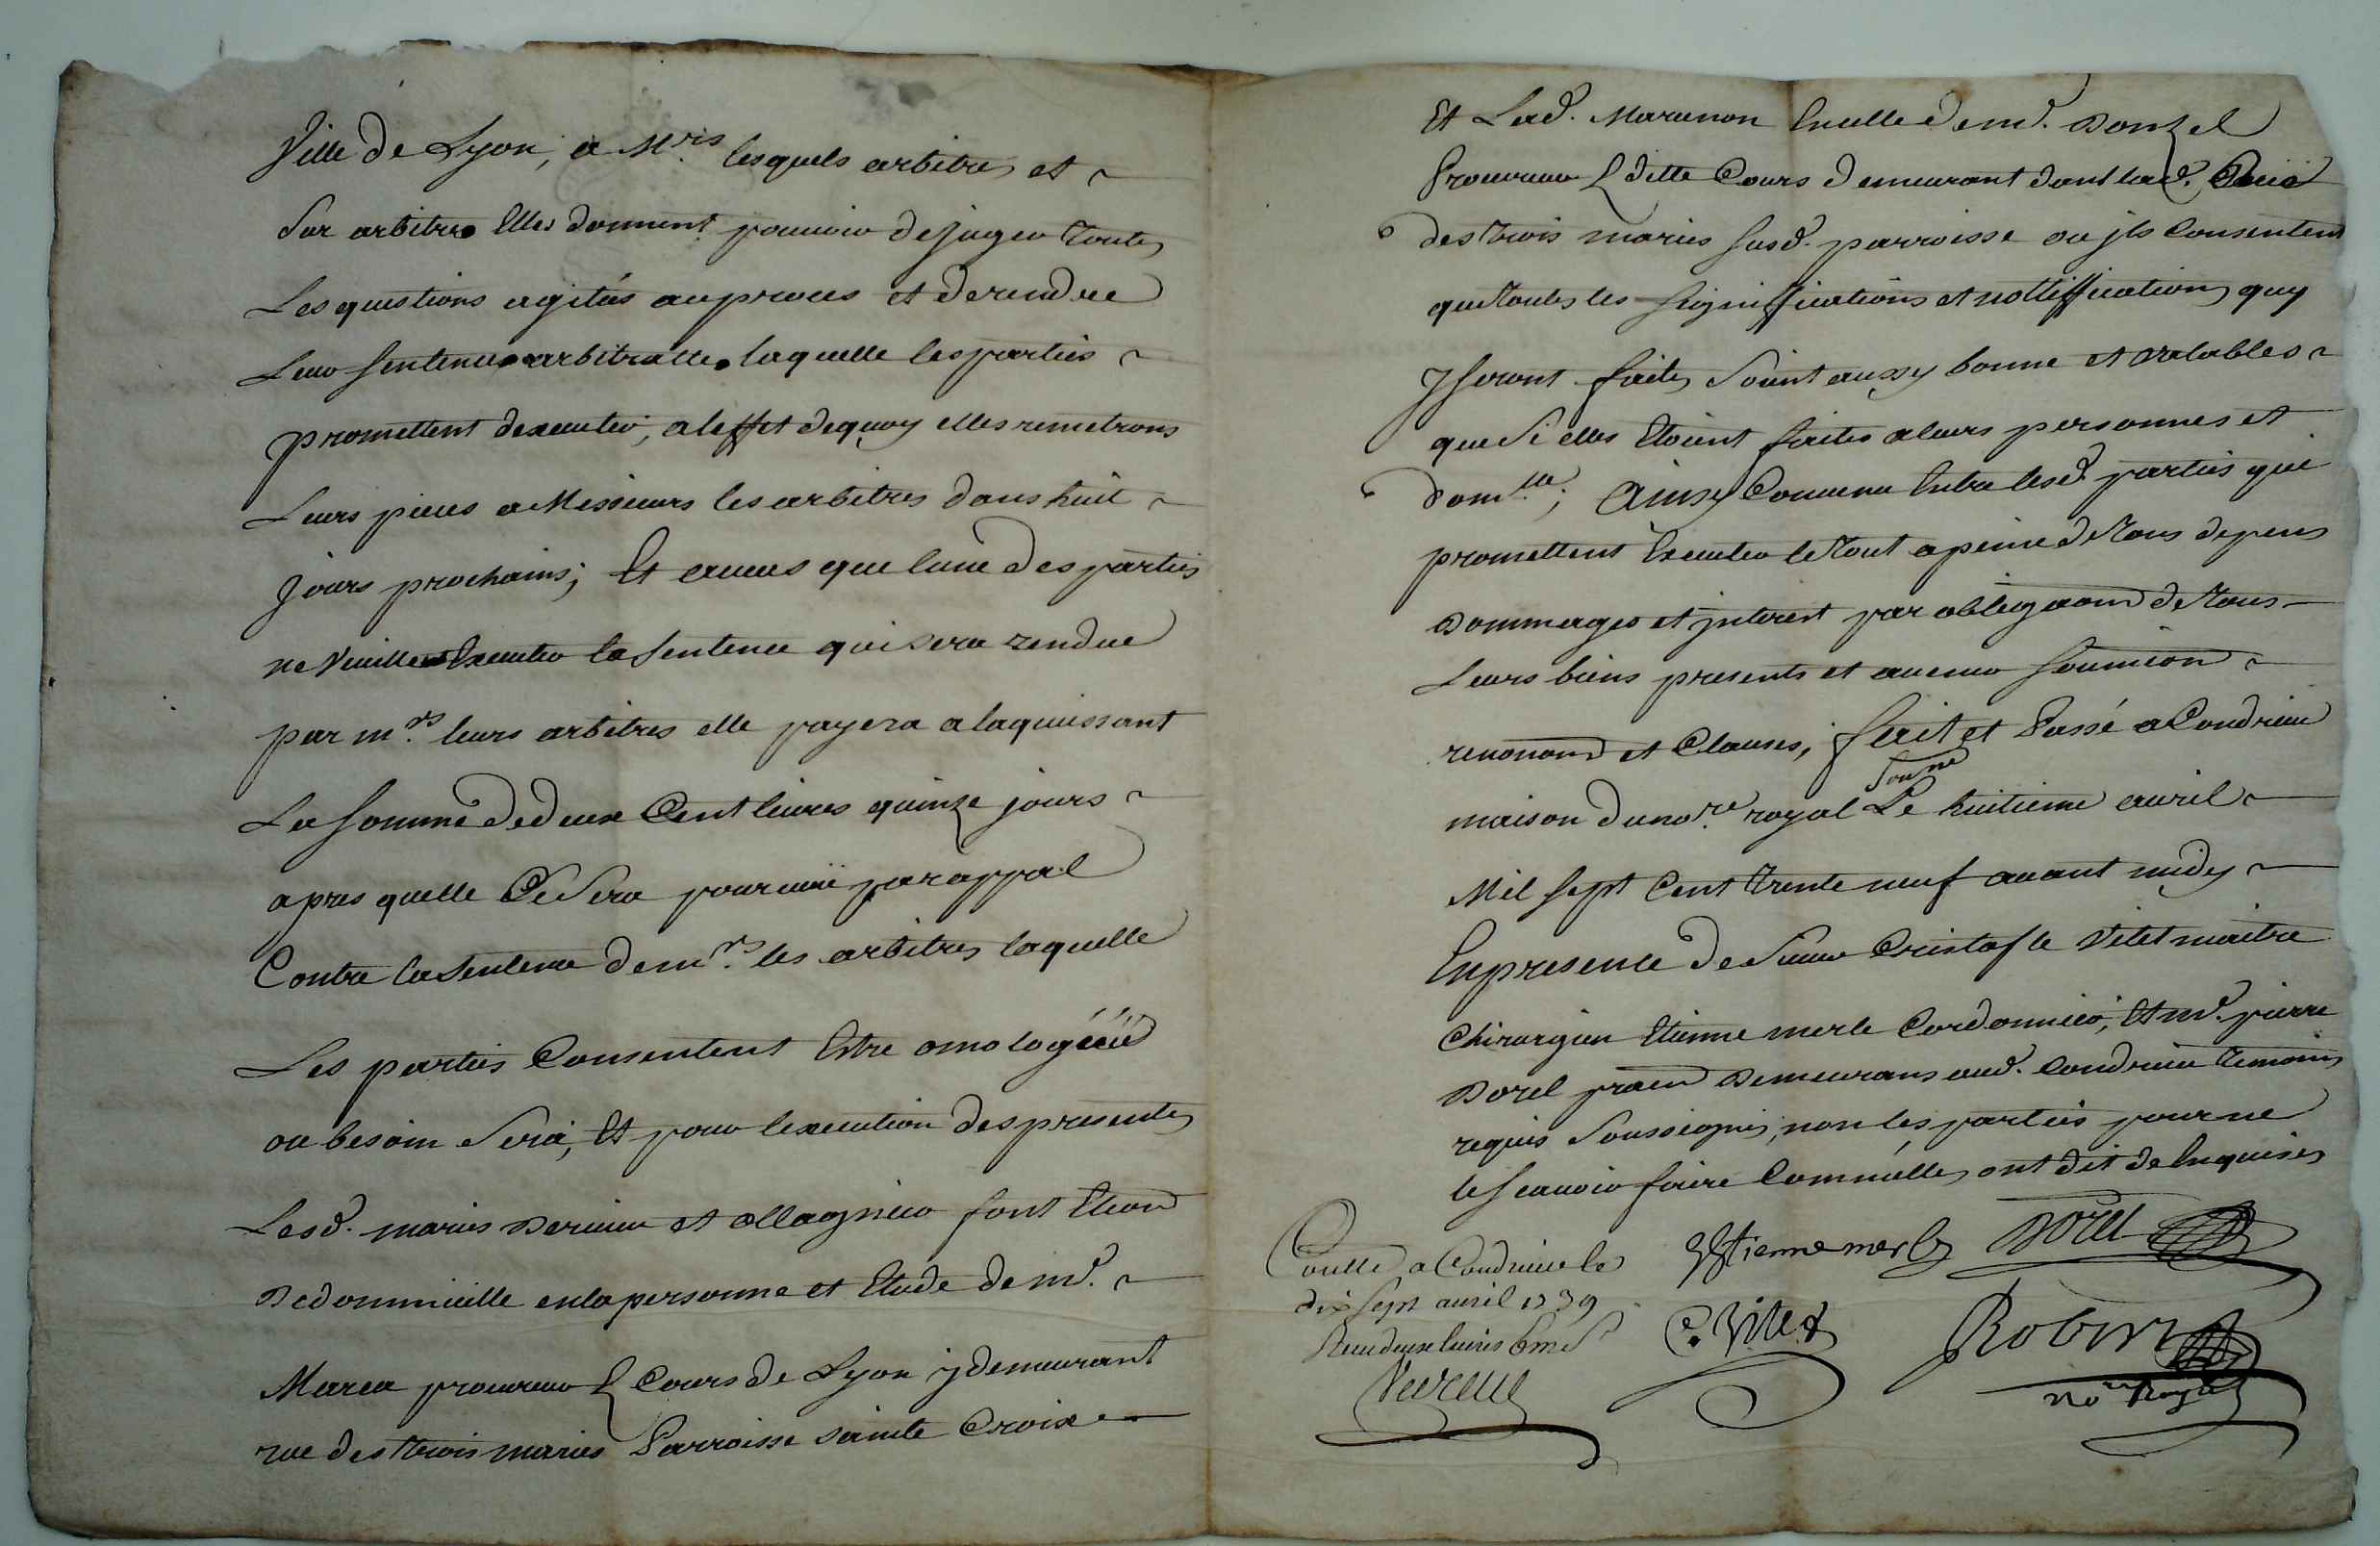 Ville de Lyon, a M.rs lesquels arbitres et
Sur arbitre Elles donnent pouvoir de juger toutes
Les questions agitées au proces et de rendre
Leur Sentence arbitralle laquelle les parties
promettent dexecuter, a leffet dequoy elles remetrons
Leurs pieces a Messieurs les arbitres dans huit
Jours prochains; Et aucas que lune des parties
ne veuille Executer la Sentence qui sera rendue
par m.rs leurs arbitres elle payera a laquiessant
La Somme de deux Cent livres quinze jours
apres quelle Ce Sera pourveüe par appal
Contre la Sentence de m.rs les arbitres laquelle
Les parties Consentent Estre omologéeé
ou besoin Sera, Et pour lexecution des presentes
Lesd. maries Perieu et ollagnier font Eleon
De dommicille en la personne et Etude de me.
Marca procureur Cours de Lyon y demeurant
rue des trois maries Parroisse Sainte Croix
Et Lad. Marunon En celle de me. Donzel
Procureur ditte Cours demeurant dans lad. Rüe
des trois maries susd. parroisse ou jls Consentent
que toutes les Signiffications et nottiffications quy
y Seront faites Soient aussy bonne et valables
que Si elles Etoient faites a leurs personnes et
dom.lle; Ainsy Convenu Entre lesd. parties qui
promettent Executer le tout a peine de tous depens
Dommages et jnterest par obligaons de tous
Leurs biens presents et avenir Soumion
renonaons et Clauses, fait et Passé a Condrieu
maison du no.re royal Sousne Le huitieme avril
Mil Sept Cent trente neuf avant midy
En presence de Sieur Cristofle Vitet maitre
Chirurgien Etienne merle Cordonnier, Et me. pierre
Dorel praen Demeurans aud. Condrieu temoins
requis Soussignés, non les parties pour ne
le Scavoir faire Comme elles ont dit de Enquises
Conllé a Condrieu le Esttienne merle Dorel
dix Sept avril 1739
Reçu deux livres C. Vitet Robin
no.re Royal